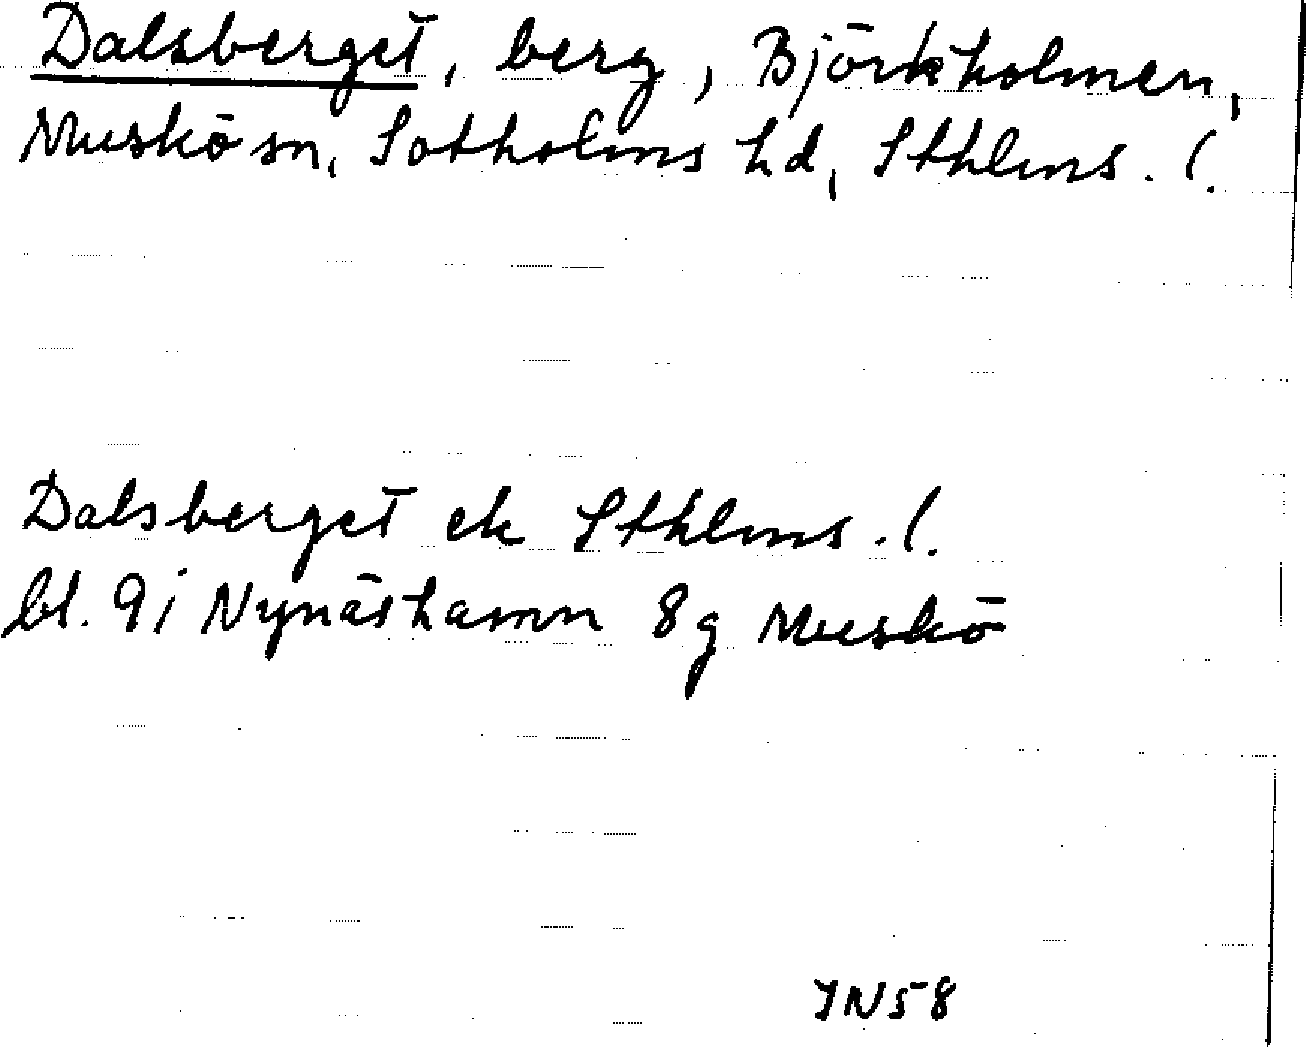 Dalsberget, berg, Björkholmen,
Muskö sn, Sotholms hd, Sthlms. l.
Dalsberget ek Sthlms. l.
bl. 9i Nynäshamn 8g Muskö
YN58